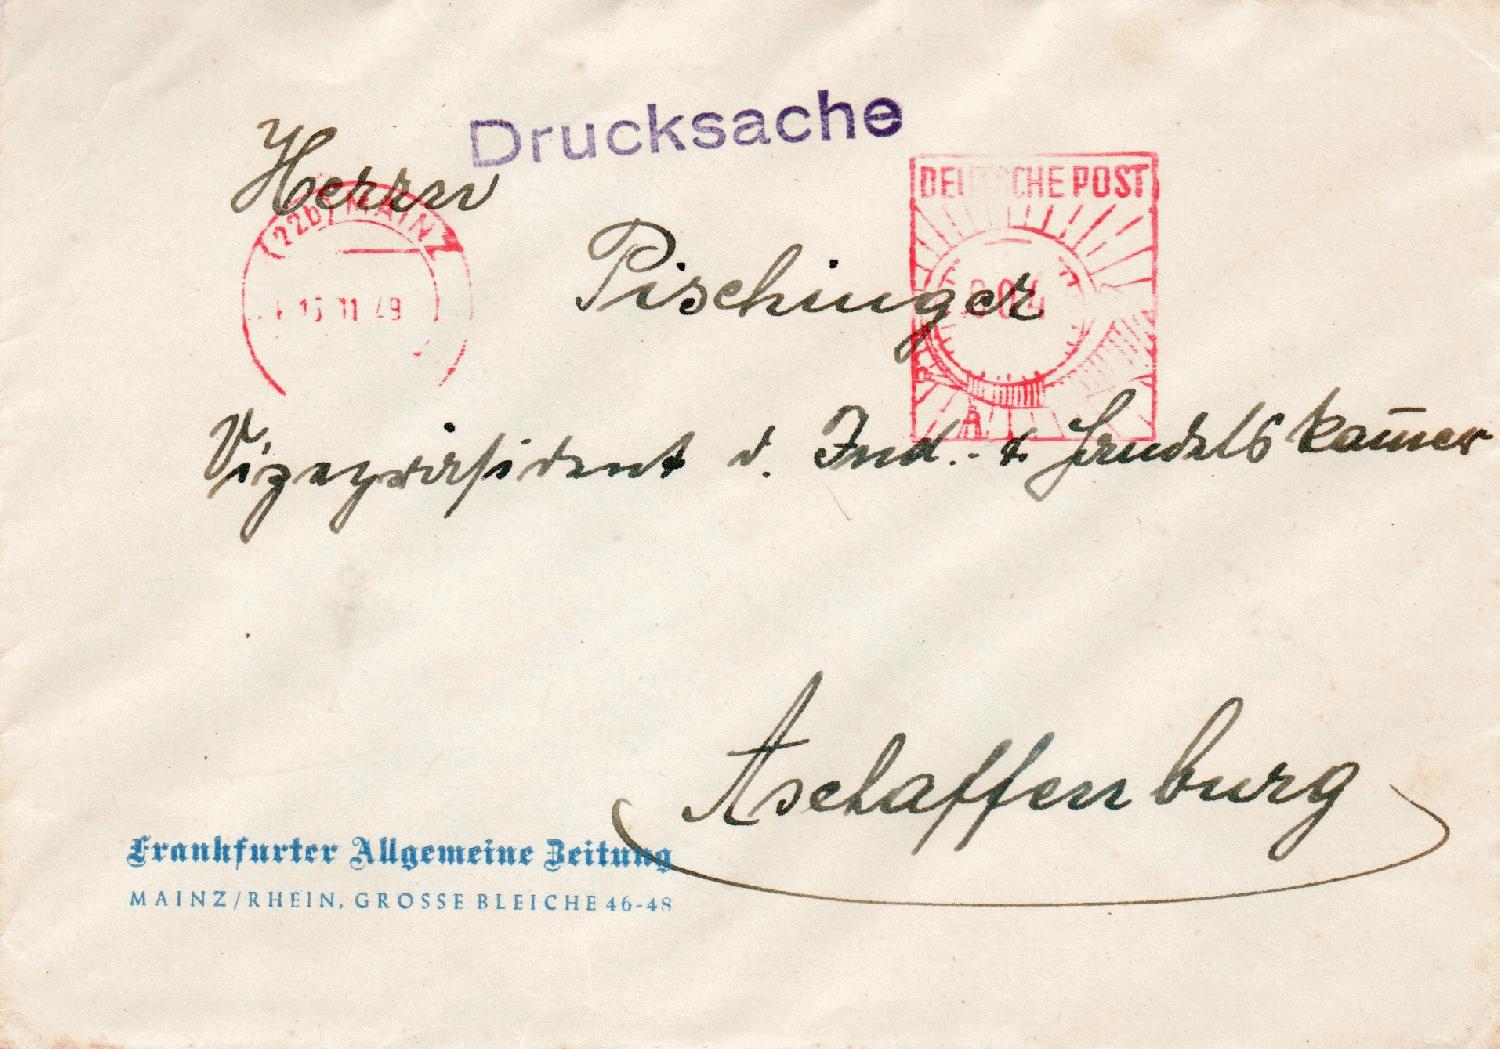 Drucksache
Herrn
(22b) MAINZ
15 11 49
DEUTSCHE POST
004
Pischinger
Vizepräsident d. Ind.- & Handelskam̄er
Aschaffenburg
Frankfurter Allgemeine Zeitung
MAINZ/RHEIN, GROSSE BLEICHE 46-48